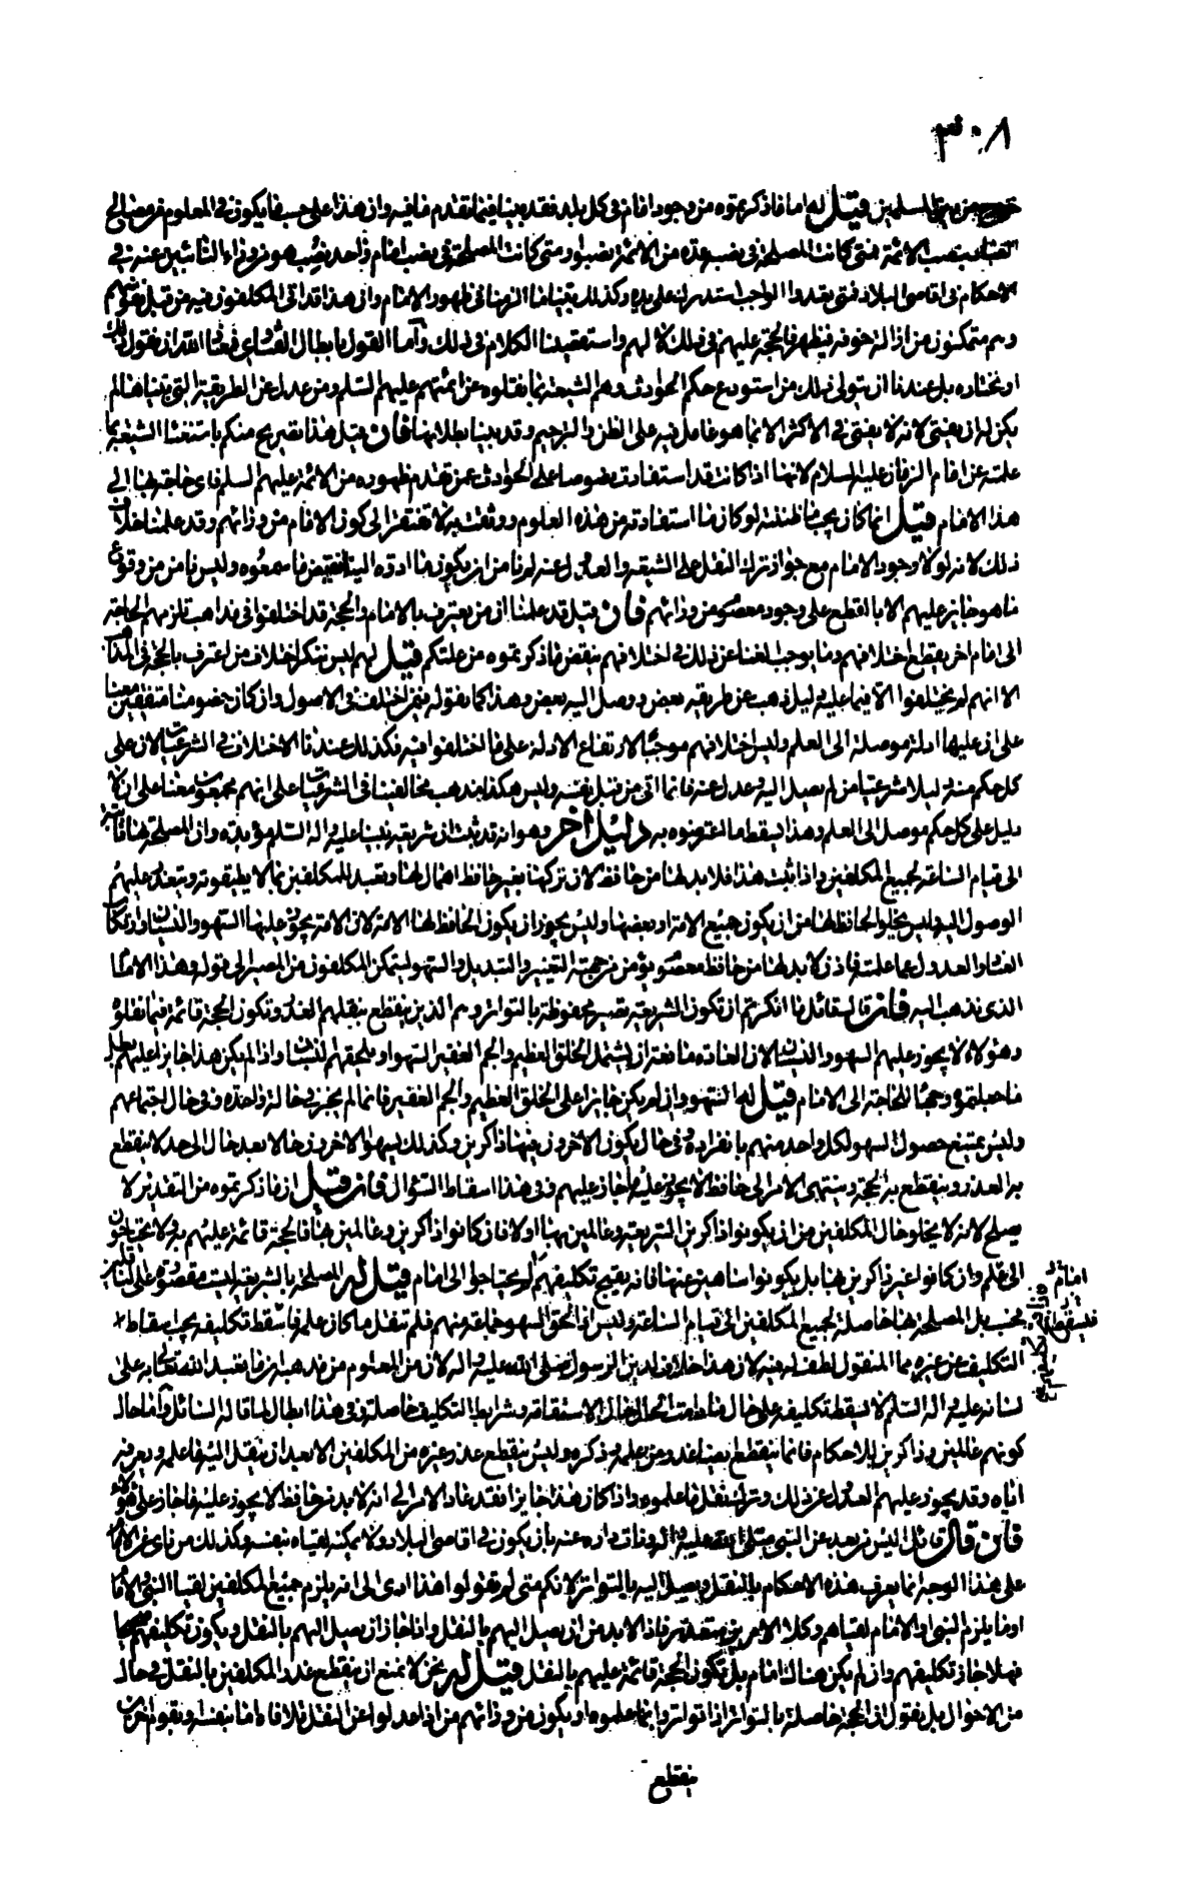 ٣٠٨
المسلمين قيل له اما ما ذكرتموه من وجود امام في كل بلد فقد بينا فيما تقدم ما فيه وان هذا على حسب ما يكون في المعلوم من مصالح
العباد بنصب الائمة فمتى كانت المصلحة في نصب عدة من الائمة نصبوا ومتى كانت المصلحة في نصب امام واحد نصب هو من وراء النائبين عنه في
الاحكام في اقاصي البلاد فمتى بعدوا الواجب استدرك على يده وكذلك بينا ما الزمنا في ظهور الامام وان هذا قد اتى المكلفون فيه من قبل نفوسهم
وهم متمكنون من ازالة خوفه فيظهر فالحجة عليهم في ذلك لا لهم واستقصينا الكلام في ذلك واما القول بابطال الفتاوى فمعاذ الله ان نقول ذلك
او نختاره بل عندنا ان يتولى ذلك من استودع حكم الحوادث وهم الشيعة بما نقلوه عن ائمتهم عليهم السلم ومن عدل عن الطريقة التي بيناها لم
يكن له ان يفتي لانه لا يفتي في الاكثر الا بما هو عامل فيه على الظن والترجيم وقد بينا بطلانها فان قيل هذا تصريح منكم باستغناء الشيعة بما
علمته عن امام الزمان عليه السلام لانها اذا كانت قد استفادت نصوصا على الحوادث عمن تقدم ظهوره من الائمة عليهم السلم فاى حاجة بها الى
هذا الامام قيل انما كان يجب ما ظننته لو كان ما استفادته من هذه العلوم ووثقت به لا تفتقر الى كون الامام من ورائهم وقد علمنا خلاف
ذلك لانه لولا وجود الامام مع جواز ترك النقل على الشيعة والعدول عنه لم نامن ان يكون ما ادوه الينا بعض ما سمعوه وليس نامن من وقوع
ما هو جايز عليهم الا بالقطع على وجود معصوم من ورائهم فان قيل قد علمنا ان من يعترف بالامام والحجة قد اختلفوا في مذاهب تلزمهم الحاجة
الى امام اخر يقطع اختلافهم وما يوجب الغناء عن ذلك في اختلافهم ينقض ما ذكرتموه من علتكم قيل لهم ليس ننكر اختلاف من اعترف بالحجة في المذاهب
الا انهم لم يختلفوا الا فيما عليه دليل ذهب عن طريقه بعض ووصل اليه بعض وهذا كما نقوله فيمن اختلف في الاصول وان كان خصومنا متفقين معنا
على ان عليها ادلة موصلة الى العلم وليس اختلافهم موجبا لارتفاع الادلة على ما اختلفوا فيه فكذلك عندنا الاختلاف في الشرعيات لان على
كل حكم منه دليلا شرعيا من لم يصل اليه وعدل عنه فانما اتى من قبل نفسه وليس هكذا مذهب مخالفينا في الشرعيات على انهم مجمعون معنا على ان لا
دليل على كل حكم موصل الى العلم وهذا يسقط ما اعترضوه به دليل اخر وهو انه قد ثبت ان شريعة نبينا عليه وآله السلم مؤبدة وان المصلحة بها ثابتة
الى قيام الساعة لجميع المكلفين واذا ثبت هذا فلا بد لها من حافظ لان تركها بغير حافظ اهمال لها وتعبد للمكلفين بما لا يطيقونه ويتعذر عليهم
الوصول اليه وليس يخلو الحافظ لها من ان يكون جميع الامة او بعضها وليس يجوز ان يكون الحافظ لها الامة لان الامة يجوز عليها السهو والنسيان وارتكاب
الفساد والعدول عما علمته فاذن لا بد لها من حافظ معصوم يؤمن من جهته التغيير والتبديل والسهو ليتمكن المكلفون من المصير الى قوله وهذا الامام
الذى نذهب اليه فان قال قائل ما انكرتم ان تكون الشريعة تصير محفوظة بالتواتر وهم الذين ينقطع بنقلهم العذر وتكون الحجة قائمة فيما نقلوه
وهؤلاء لا يجوز عليهم السهو والنسيان لان العادة مانعة ان يشمل الخلق العظيم والجم الغفير السهو او يلحقهم النسيان واذا لم يكن هذا جايزا عليهم بطل
ما جعلتموه وجها للحاجة الى الامام قيل له السهو وان لم يكن جايزا على الخلق العظيم والجم الغفير فانما لم يجز في حالة واحدة وفي حال اجتماعهم
وليس يمتنع حصول السهو لكل واحد منهم بانفراده وفي حال يكون الآخرون فيها ذاكرين وكذلك يسهوا الاخرون حالا بعد حال الى حد لا ينقطع
به العذر وينقطع به الحجة وينتهى الامر الى حافظ لا يجوز عليه ما جاز عليهم وفى هذا اسقاط السؤال فان قيل ان ما ذكرتموه من التقدير لا
يصلح لانه لا يخلو حال المكلفين من ان يكونوا ذاكرين الشريعة وعالمين بها او لا فان كانوا ذاكرين وعالمين بها فالحجة قائمة عليهم به ولا يحتاجون
الى امام وان كانوا غير ذاكرين بها بل يكونوا ساهين عنها فانه يقبح تكليفهم لم يحتاجوا الى امام قيل له المصلحة بالشريعة ليست مقصورة على الناقلين
فحسب بل المصلحة بها حاصلة لجميع المكلفين الى قيام الساعة وليس اذا لحق السهو جماعة منهم فلم تنقل ما كان علم فاسقط تكليفه يجب اسقاط
التكليف عن غيره مما المنقول لطف له فيه لان هذا خلاف لدين الرسول صلى الله عليه وآله لان من المعلوم من مذهبه ان ما تعبد الله تعالى به على
لسانه عليه وآله السلم لا يسقط تكليفه على حال ما دامت الحال حال الاستقامة وشرايط التكليف حاصلة وفى هذا ابطال لما قاله السائل واما حال
كونهم عالمين وذاكرين للاحكام فانما ينقطع بعينه عذر من يعلمه وذكره وليس ينقطع عذر غيره من المكلفين الا بعد ان ينقل اليه ما علمه ويعرفه
اياه وقد يجوز عليهم العدول عن ذلك وترك نقل ما علموه واذا كان هذا جايزا فقد عاد الامر الى انه لا بد من حافظ لا يجوز عليه ما جاز على هؤلاء
فان قال قائل اليس من بعد عن النبي صلى الله عليه وآله ونأت داره عنه بان يكون في اقاصى البلاد ولا يمكنه لقياه بنفسه وكذلك من ناى عن الامام
على هذا الوجه انما يعرف هذه الاحكام بالنقل ويصل اليه بالتواتر لانكم متى لم تقولوا هذا ادى الى انه يلزم جميع المكلفين لقيا النبي والامام
او ما يلزم النبي والامام لقياهم وكلا الامرين متعذر فاذا لا بد من ان يصل اليهم بالنقل واذا جاز ان يصل اليهم بالنقل ويكون تكليفهم صحيحا
فهلا جاز تكليفهم وان لم يكن هناك امام بل تكون الحجة قائمة عليهم بالنقل قيل له نحن لا نمنع ان ينقطع عذر المكلفين بالنقل في حال
من الاحوال بل نقول ان الحجة حاصلة بالتواتر اذا تواتروا بما علموه او يكون من ورائهم من اذا عدلوا عن النقل تلافاه اما بنفسه او بقوم اخرين
ينقطع